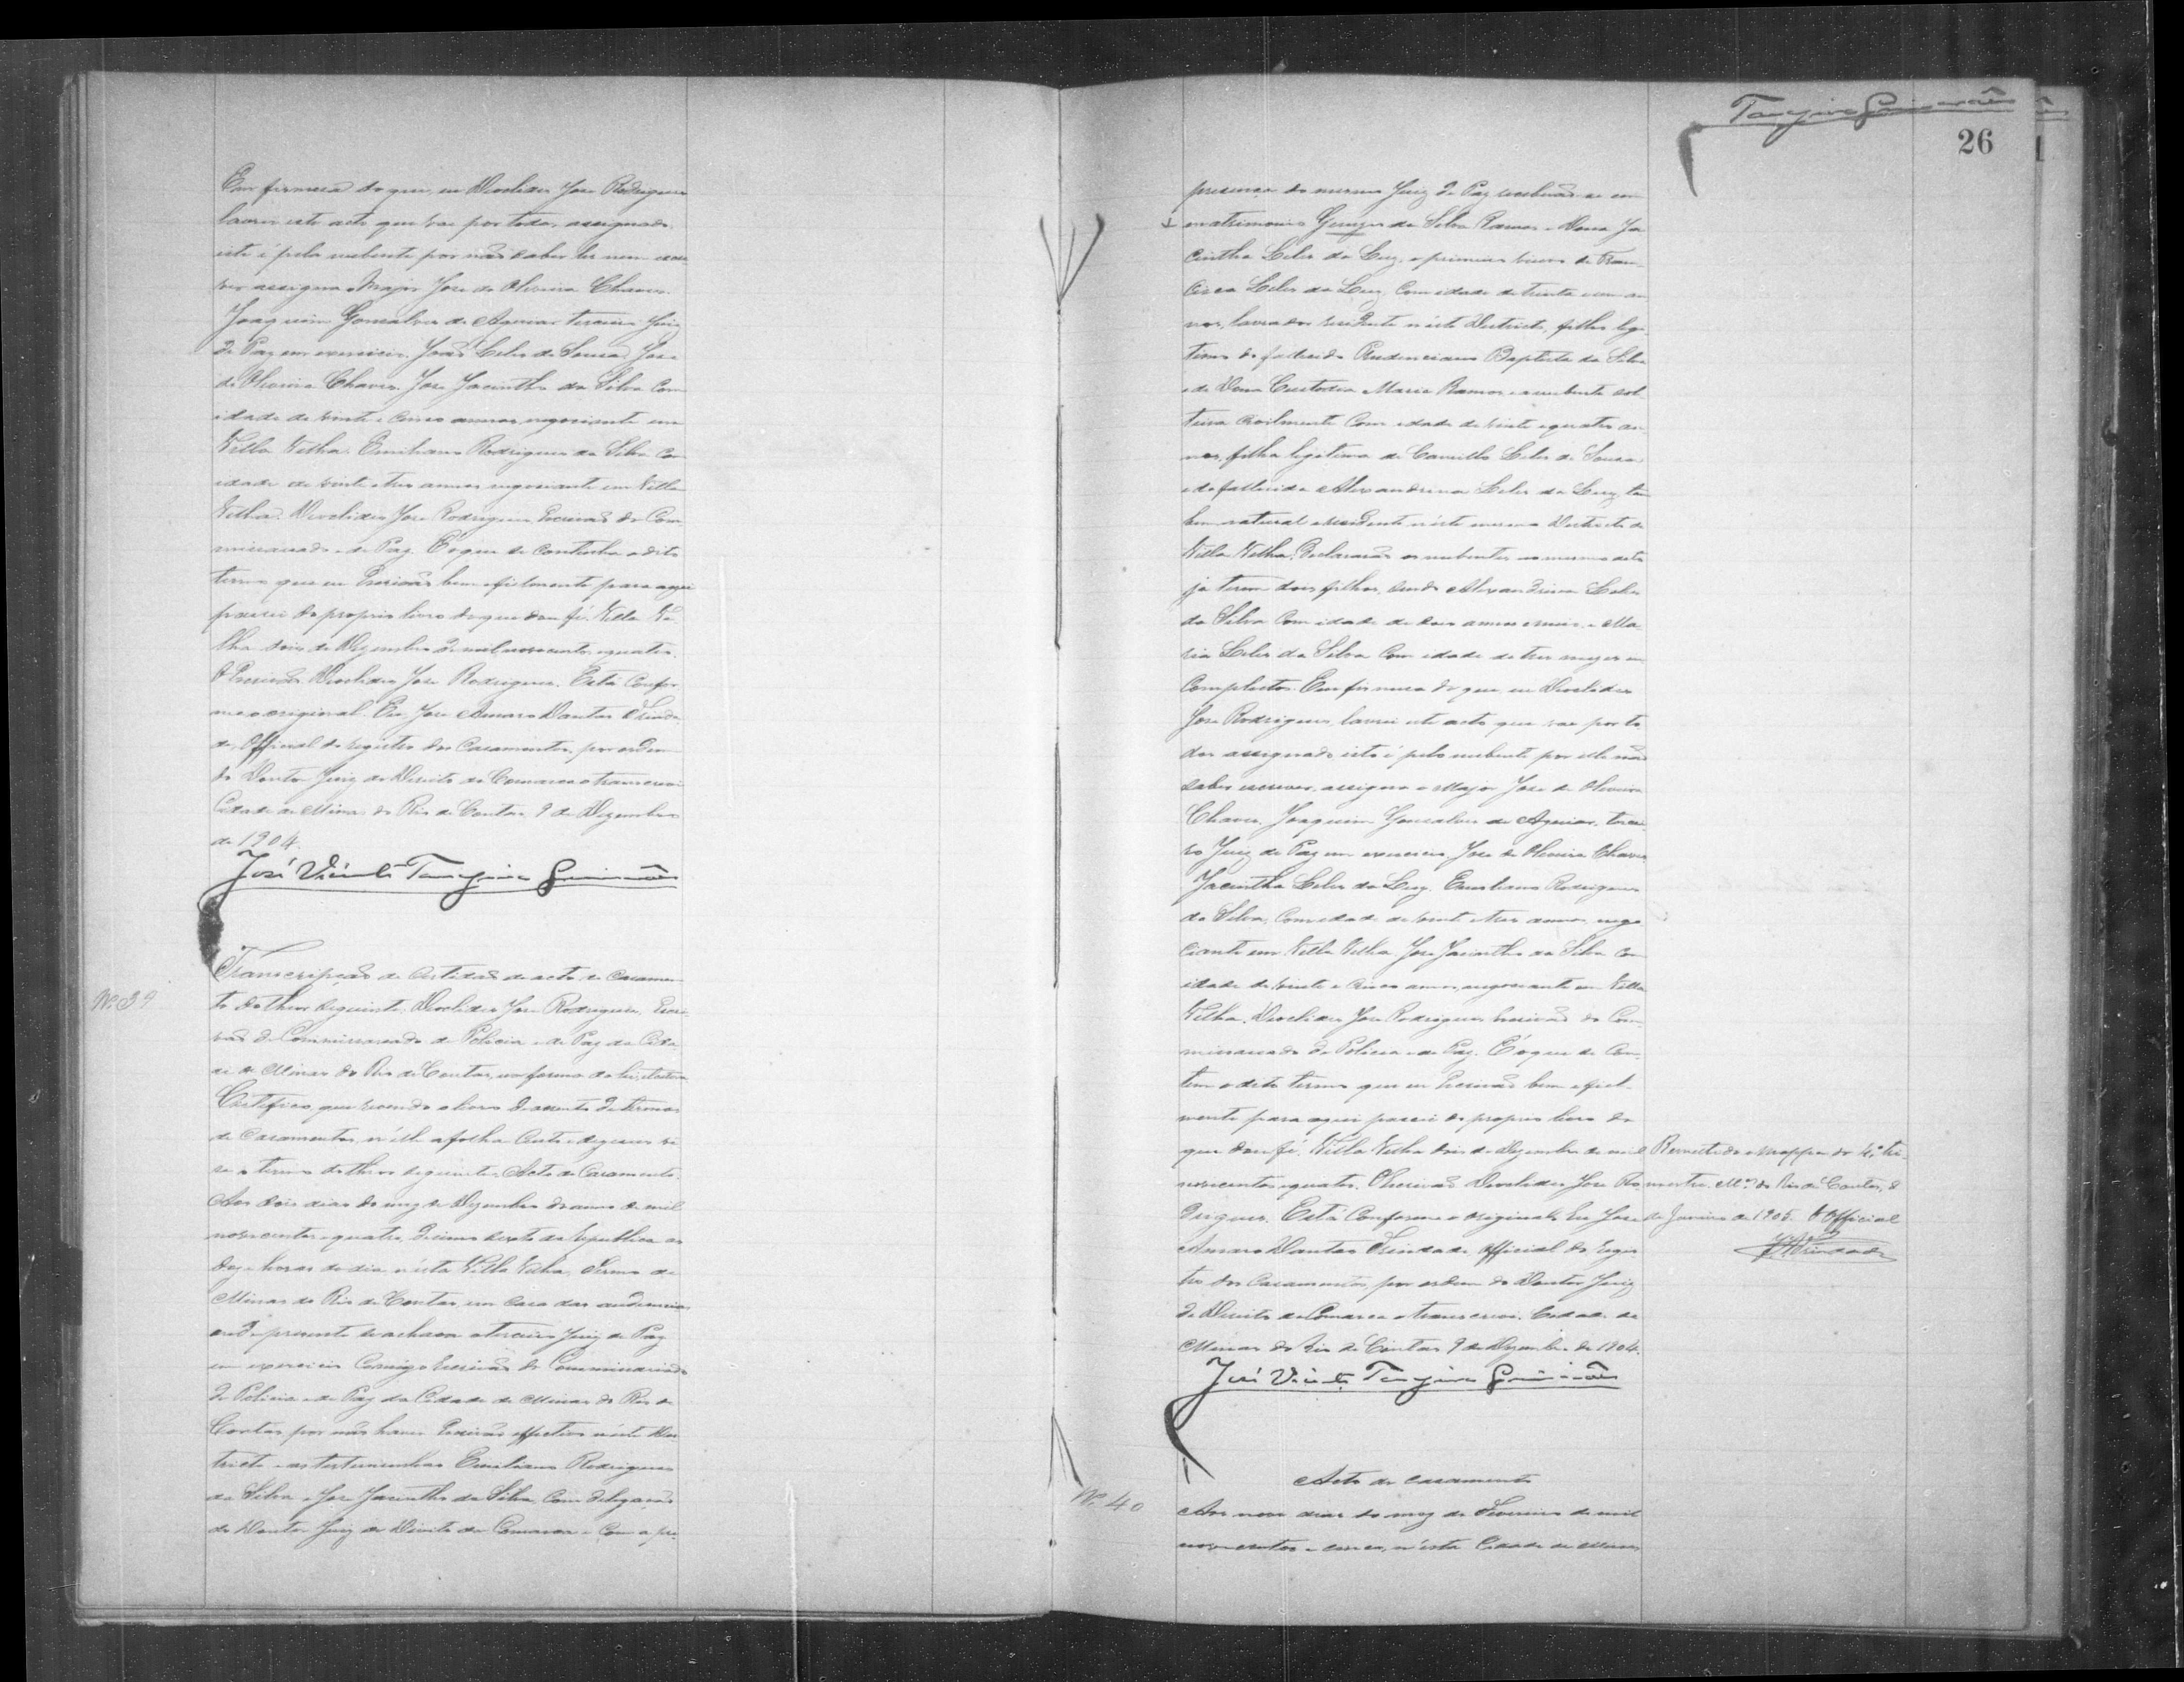 Em firmeza do que, eu Deoclides Jose Rodrigues
lavrei este acto que vae por todos assignado
isto é pela nubente por não saber ler nem escre
ver assigna o Major Jose de Oliveira Chaves.
Joaquim Gonsalves de Aguiar terceiro Juiz
de Paz em exercicio. João Leles de Sousa Jose
de Oliveira Chaves. Jose Jacintho da Silva com
idade de vinte e cinco annos, negociante em
Villa Velha. Emiliano Rodrigues da Silva com
idade de vinte e tres annos negociante em Villa
Velha. Deoclides Jose Rodrigues Escrivão do Com
missariado e de Paz. É o que se continha o dito
termo que eu Escrivão bem e fielmente para aqui
passei do proprio livro do que dou fé. Villa Ve
lha dois de Dezembro de mil novecentos e quatro.
O Escrivão Deoclides Jose Rodrigues. Está confor
me o original. Eu Jose Amaro Dantas Trinda
de, Official do registro dos Casamentos, por ordem
do Doutor Juiz de Direito da Comarca o transcrevi
Cidade de Minas do Rio de Contas 9 de Dezembro
de 1904.
José Vicente Tanajura Guimarães
Nº 39
Transcripção da Certidão do acto de Casamen
to do theor seguinte. Deoclides Jose Rodrigues, Escri
vão do Commissariado de Policia e de Paz da Cida
de de Minas do Rio de Contas, na forma da lei, etc.
Certifico que revendo o livro de assento de termos
de Casamentos n'elle a folha cento e dezeseis ve
se o termo do theor seguinte. Acto de Casamento.
Aos dois dias do mez de Dezembro do anno de mil
novecentos e quatro, decimo sexto da Republica as
doze horas do dia n'esta Villa Velha, Termo de
Minas do Rio de Contas, em casa das audiencias
onde presente se achava o terceiro Juiz de Paz
em exercicio Comigo Escrivão do Commissariado
de Policia e de Paz da Cidade de Minas do Rio de
Contas, por não haver Escrivão effectivo n'este Dis
tricto e as testemunhas Emiliano Rodrigues
da Silva e Jose Jacintho da Silva, com delegação
do Doutor Juiz de Direito da Comarca e com a pre
Tanajura Guimarães
26
presença do mesmo Juiz de Paz receberão-se em
matrimonio da Silva Ramos e Dona Ja
cintha Leles da Luz, o primeiro viuvo de Fran
cisca Leles da Luz, com idade de trinta e um an
nos, lavrador residente n'este Districto, filho legi
timo do fallecido Prudenciano Baptista da Silva
e de Dona Custodia Maria Ramos e a nubente sol
teira civilmente com idade de vinte e quatro an
nos, filha legitima de Camillo Leles de Sousa
e da fallecida Alexandrina Leles da Luz, tam
bem natural e residente n'este mesmo Districto de
Villa Velha. Declararão os nubentes no mesmo acto
ja terem dois filhos, sendo Alexandrina Leles
da Silva com idade de dois annos e meio, e Ma
ria Leles da Silva com idade de tres mezes in
completos. Em firmeza do que, eu Deoclides
Jose Rodrigues, lavrei este acto que vae por to
dos assignado isto é pelo nubente por elle não
saber escrever, assigna o Major Jose de Oliveira
Chaves. Joaquim Gonsalves de Aguiar, tercei
ro Juiz de Paz em exercicio Jose de Oliveira Chaves
Jacintha Leles da Luz. Emiliano Rodrigues
da Silva, com idade de vinte e tres annos, nego
ciante em Villa Velha. Jose Jacintho da Silva com
idade de vinte e cinco annos, negociante em Villa
Velha. Deoclides Jose Rodrigues Escrivão do Com
missariado de Policia e de Paz. É o que se con
tem o dito termo que eu Escrivão bem e fiel
mente para aqui passei do proprio livro do
que dou fé. Villa Velha dois de Dezembro de mil
novecentos e quatro. O Escrivão Deoclides Jose Ro
drigues. Está Conforme o original. Eu Jose
Amaro Dantas Trindade, Official do regis
tro dos Casamentos, por ordem do Doutor Juiz
de Direito da Comarca o transcrevi. Cidade de
Minas do Rio de Contas 9 de Dezembro de 1904.
José Vicente Tanajura Guimarães
Remettido o mappa do 4º tri
mestre. Mas do Rio de Contas, 8
de Janeiro de 1905. O Official
Trindade
Nº 40
Acto de casamento
Aos nove dias do mez de Fevereiro de mil
novecentos e cinco, n'esta Cidade de Minas